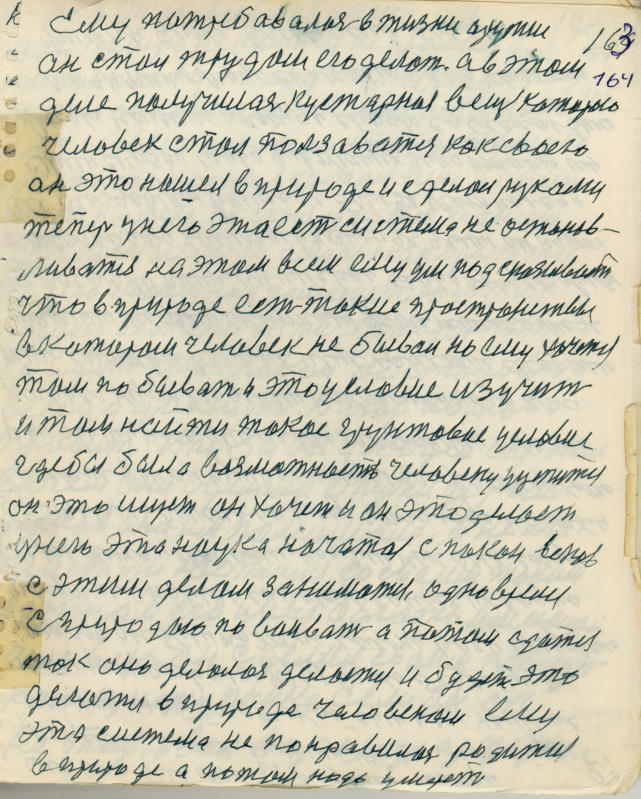 163
164
Ему потребавалоя в жизни други
ан стал трудом его делат. а в этом
деле получилая кустарноя вещ катораю
человек стал ползаватя как своего
ан это нашел в природе и сделал руками
тепер у него эта ест система не останов-
ливатя на этом всем ему ум подсказывает
что в природе ест такие пространствы
в котором человек не бывал но ему хочитя
там по быват и это условие изучит
и там найти такое грунтовое условие
где бы была возможность человеку
он это ищет он хочет и он это делает
у него эта наука начата с покон веков
с этим делом заниматя, одно время
с природаю по воеват а потом сдатя
так оно делалоя делаетя и будет это
делатя в природе человеком ему
эта система не понравилоя родитя
в природе а потом надо умерет